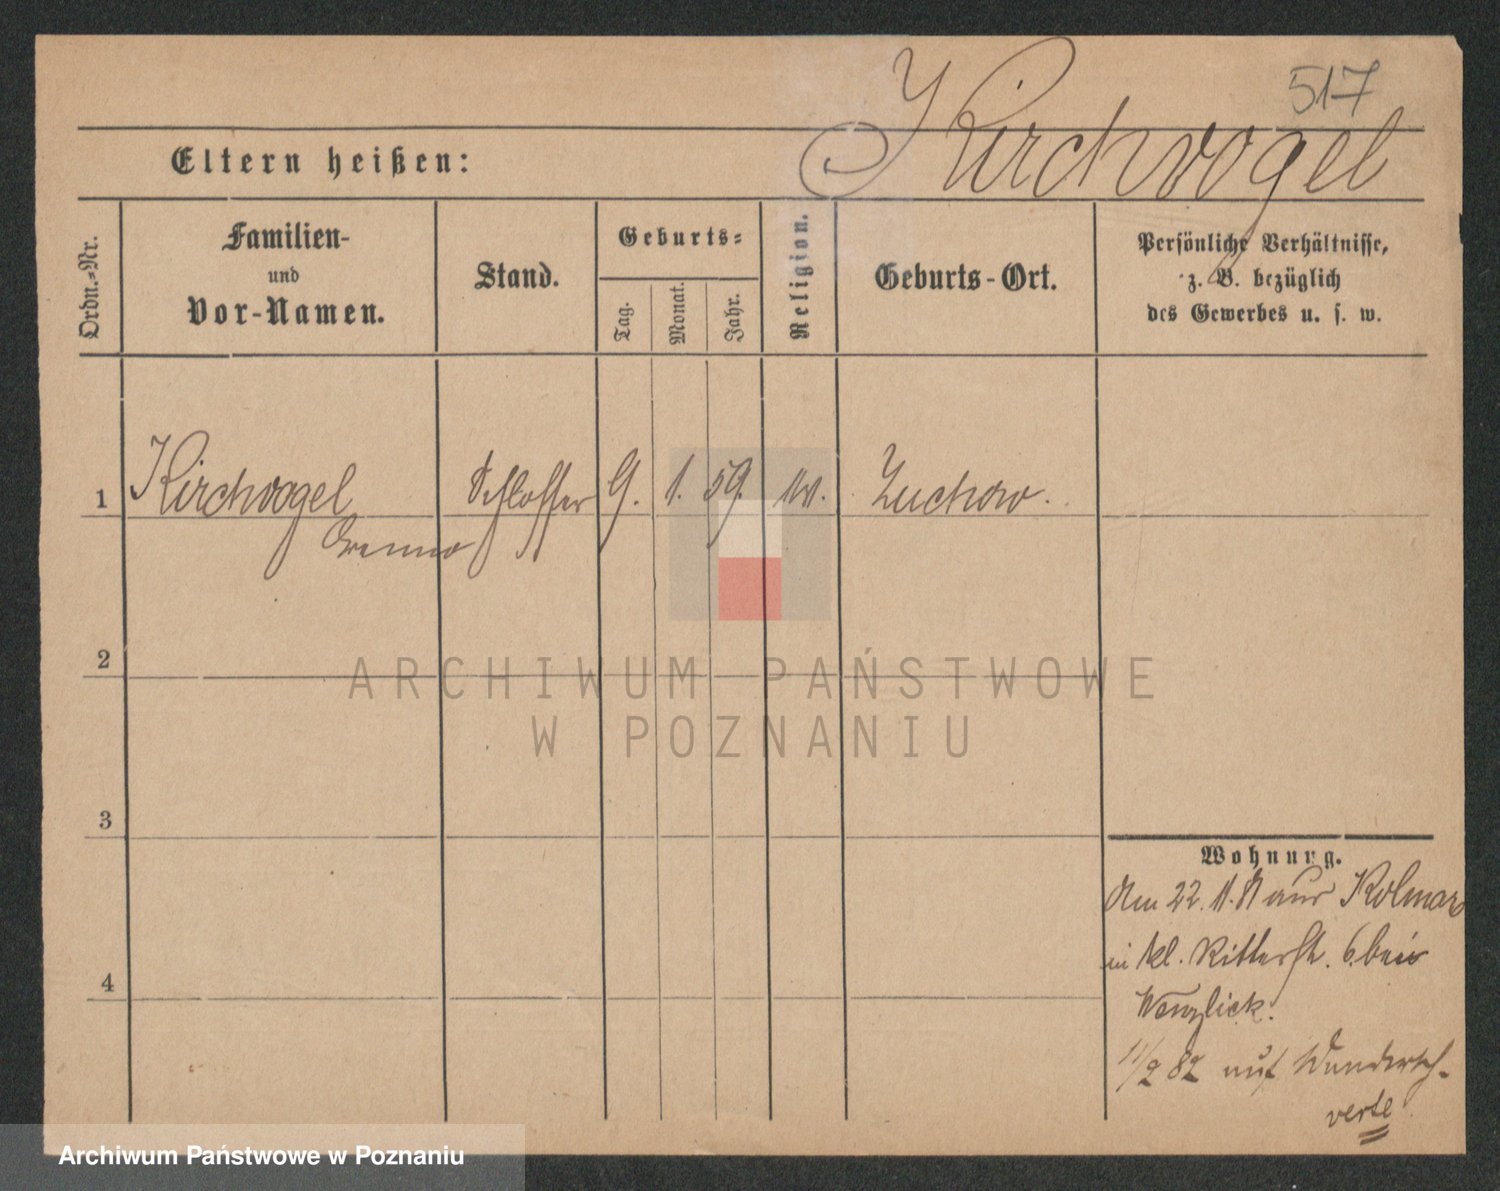 517
Kirchvogel
Eltern heißen:
Ordn.-Nr.
Familien-
und
Vor-Namen.
Stand.
Geburts-
Tag.
Monat.
Jahr.
Religion.
Geburts-Ort.
Persönliche Verhältnisse,
z. B. bezüglich
des Gewerbes u. s. w.
1 Kirchvogel Schlosser 9. 1. 59. Zuchow.
2
3
4
Wohnung.
Am 22. 11. 81 aus Kolmar
in kl. Ritterstr. 6. bei
11/2 82 auf
verte
ARCHIWUM PAŃSTWOWE
W POZNANIU
Archiwum Państwowe w Poznaniu